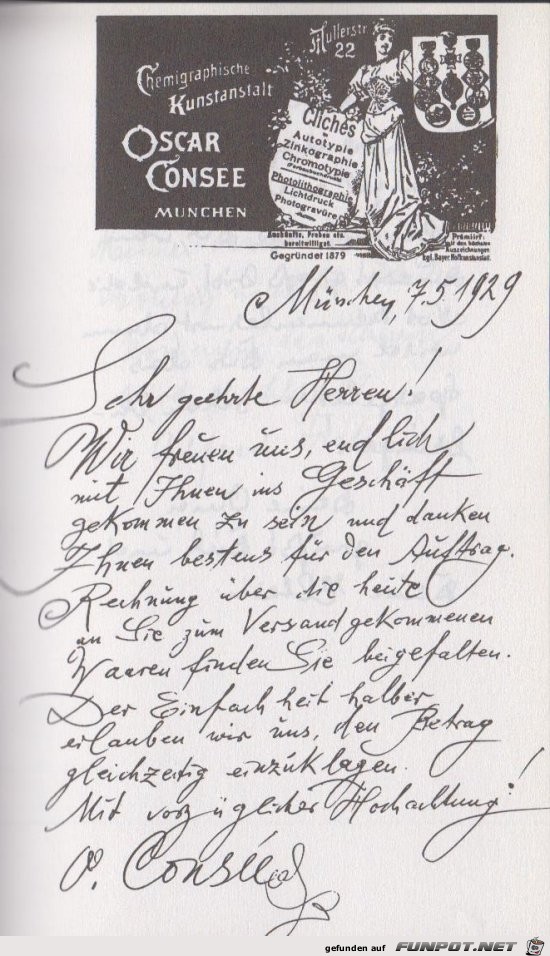 Müllerstr.
22
Chemigraphische
Kunstanstalt
OSCAR
CONSEE
MÜNCHEN
Clichés
Autotypie
Zinkographie
Chromotypie
Photolithographie
Lichtdruck
Photogravüre
Proben etc.
bereitwilligst.
Gegründet 1879
Prämiirt
mit den höchsten
Auszeichnungen
kgl. Bayer. Hofkunstanstalt.
München, 7.5.1929
Sehr geehrte Herren!
Wir freuen uns, endlich
mit Ihnen ins Geschäft
gekommen zu sein und danken
Ihnen bestens für den Auftrag.
Rechnung über die heute
an Sie zum Versand gekommenen
Waaren finden Sie beigefalten.
Der Einfachheit halber
erlauben wir uns, den Betrag
gleichzeitig einzuklagen.
Mit vorzüglicher Hochachtung!
O. Consée
gefunden auf FUNPOT.NET